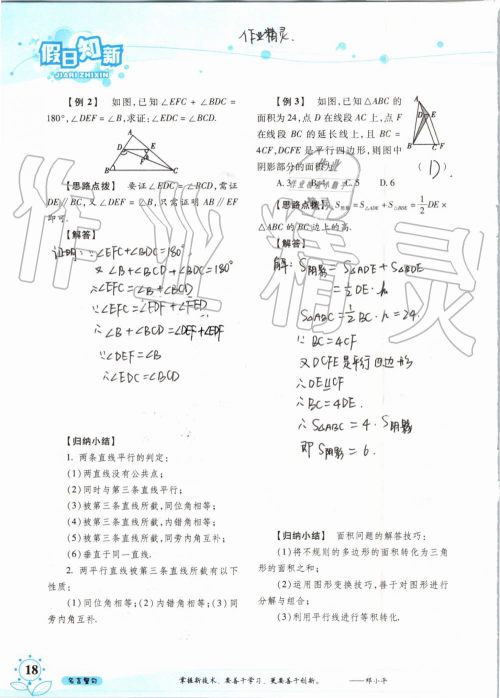 假日知新
JIARI ZHIXIN
作业精灵.
【例 2】 如图,已知∠EFC + ∠BDC =
180°,∠DEF = ∠B,求证:∠EDC = ∠BCD.
A
D
E
F
B
C
【思路点拨】 要证∠EDC=∠BCD,需证
DE∥BC,又∠DEF=∠B,只需证明 AB∥EF
即可.
【解答】
证明:∵∠EFC+∠BDC=180°
又∠B+∠BCD+∠BDC=180°
∴∠EFC=∠B+∠BCD
∵∠EFC=∠EDF+∠FED
∴∠B+∠BCD=∠DEF+∠EDF
∵∠DEF=∠B
∴∠EDC=∠BCD
【归纳小结】
1. 两条直线平行的判定:
(1)两直线没有公共点;
(2)同时与第三条直线平行;
(3)被第三条直线所截,同位角相等;
(4)被第三条直线所截,内错角相等;
(5)被第三条直线所截,同旁内角互补;
(6)垂直于同一直线.
2. 两平行直线被第三条直线所截有以下
性质:
(1)同位角相等;(2)内错角相等;(3)同
旁内角互补.
【例 3】 如图,已知△ABC 的
面积为 24,点 D 在线段 AC 上,点 F
在线段 BC 的延长线上,且 BC =
4CF,DCFE 是平行四边形,则图中
阴影部分的面积为 (D)
A
D
E
B
C
F
A.3 C.5 D.6
【思路点拨】 S阴影 = S△ADE + S△BDE = 1/2 DE ×
△ABC 的 BC 边上的高.
【解答】
解: S阴影 = S△ADE + S△BDE
= 1/2 DE · h
S△ABC = 1/2 BC · h = 24
∵ BC = 4CF
又 DCFE是平行四边形
∴DE∥CF
∴BC=4DE.
∴S△ABC = 4 · S阴影
即 S阴影 = 6.
【归纳小结】 面积问题的解答技巧:
(1)将不规则的多边形的面积转化为三角
形的面积之和;
(2)运用图形变换技巧,善于对图形进行
分解与组合;
(3)利用平行线进行等积转化.
作业精灵
18
名言警句
掌握新技术,要善于学习,更要善于创新。 ——邓小平